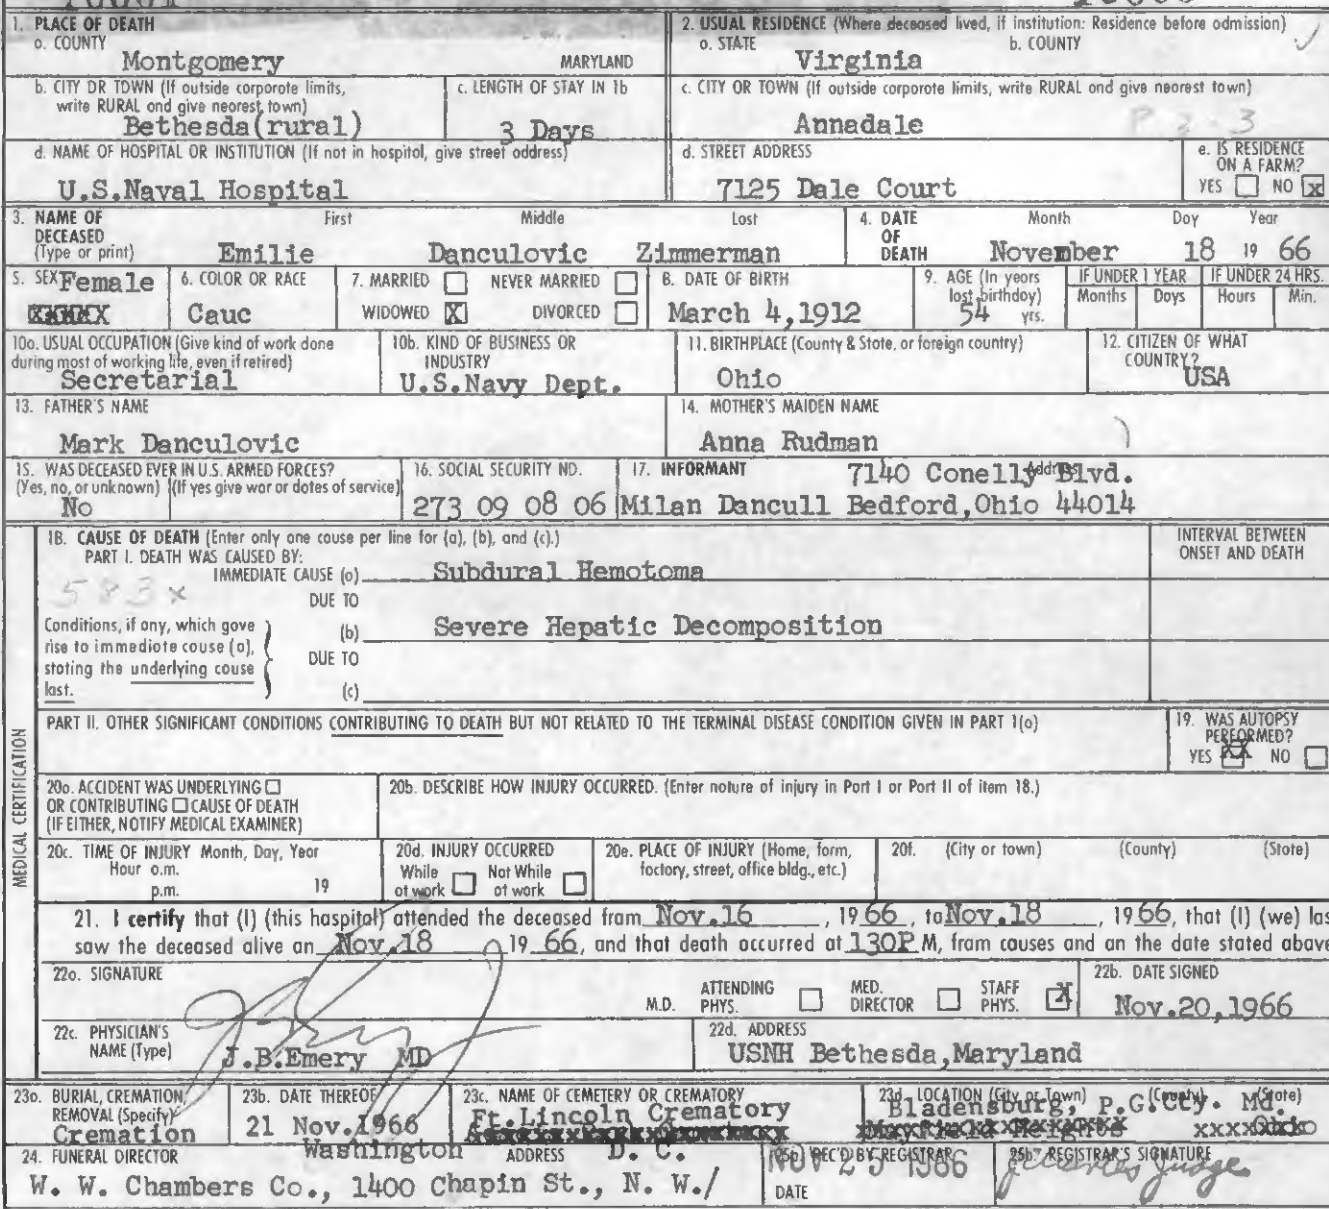 1. PLACE OF DEATH
a. COUNTY
Montgomery MARYLAND
2. USUAL RESIDENCE (Where deceased lived, if institution: Residence before admission)
a. STATE b. COUNTY
Virginia
b. CITY OR TOWN (If outside corporate limits, write RURAL and give nearest town)
Bethesda(rural)
c. LENGTH OF STAY IN 1b
3 Days
c. CITY OR TOWN (If outside corporate limits, write RURAL and give nearest town)
Annadale
d. NAME OF HOSPITAL OR INSTITUTION (If not in hospital, give street address)
U.S.Naval Hospital
d. STREET ADDRESS
7125 Dale Court
e. IS RESIDENCE ON A FARM?
YES NO X
3. NAME OF DECEASED (Type or print)
First Middle Last
Emilie Danculovic Zimmerman
4. DATE OF DEATH
Month Day Year
November 18 19 66
5. SEX Female
6. COLOR OR RACE
Cauc
7. MARRIED NEVER MARRIED
WIDOWED X DIVORCED
8. DATE OF BIRTH
March 4,1912
9. AGE (In years last birthday)
54 yrs.
IF UNDER 1 YEAR
Months Days
IF UNDER 24 HRS.
Hours Min.
10a. USUAL OCCUPATION (Give kind of work done during most of working life, even if retired)
Secretarial
10b. KIND OF BUSINESS OR INDUSTRY
U.S.Navy Dept.
11. BIRTHPLACE (County & State, or foreign country)
Ohio
12. CITIZEN OF WHAT COUNTRY?
USA
13. FATHER'S NAME
Mark Danculovic
14. MOTHER'S MAIDEN NAME
Anna Rudman
15. WAS DECEASED EVER IN U.S. ARMED FORCES?
(Yes, no, or unknown) (If yes give war or dates of service)
No
16. SOCIAL SECURITY NO.
273 09 08 06
17. INFORMANT Address
7140 Conelly Blvd.
Milan Dancull Bedford,Ohio 44014
18. CAUSE OF DEATH (Enter only one cause per line for (a), (b), and (c).)
PART I. DEATH WAS CAUSED BY:
IMMEDIATE CAUSE (a) Subdural Hemotoma
583x
DUE TO
(b) Severe Hepatic Decomposition
DUE TO
(c)
Conditions, if any, which gave rise to immediate cause (a), stating the underlying cause last.
INTERVAL BETWEEN ONSET AND DEATH
PART II. OTHER SIGNIFICANT CONDITIONS CONTRIBUTING TO DEATH BUT NOT RELATED TO THE TERMINAL DISEASE CONDITION GIVEN IN PART 1(a)
19. WAS AUTOPSY PERFORMED?
YES XX NO
MEDICAL CERTIFICATION
20a. ACCIDENT WAS UNDERLYING
OR CONTRIBUTING CAUSE OF DEATH
(IF EITHER, NOTIFY MEDICAL EXAMINER)
20b. DESCRIBE HOW INJURY OCCURRED. (Enter nature of injury in Part I or Part II of item 18.)
20c. TIME OF INJURY Month, Day, Year
Hour a.m.
p.m. 19
20d. INJURY OCCURRED
While at work Not While at work
20e. PLACE OF INJURY (Home, farm, factory, street, office bldg., etc.)
20f. (City or town) (County) (State)
21. I certify that (I) (this hospital) attended the deceased from Nov.16, 19 66, to Nov.18, 19 66, that (I) (we) las
saw the deceased alive on Nov.18 19 66, and that death occurred at 130P M, from causes and on the date stated above
22a. SIGNATURE
M.D.
ATTENDING PHYS. MED. DIRECTOR STAFF PHYS. X
22b. DATE SIGNED
Nov.20,1966
22c. PHYSICIAN'S NAME (Type)
J.B.Emery MD
22d. ADDRESS
USNH Bethesda,Maryland
23a. BURIAL, CREMATION, REMOVAL (Specify)
Cremation
23b. DATE THEREOF
21 Nov.1966
23c. NAME OF CEMETERY OR CREMATORY
Ft.Lincoln Crematory
23d. LOCATION (City or Town) (County) (State)
Bladensburg, P.G.Cty. Md.
24. FUNERAL DIRECTOR ADDRESS
Washington D. C.
W. W. Chambers Co., 1400 Chapin St., N. W./
25a. REC'D BY REGISTRAR
DATE
NOV 25 1966
25b. REGISTRAR'S SIGNATURE
Judge